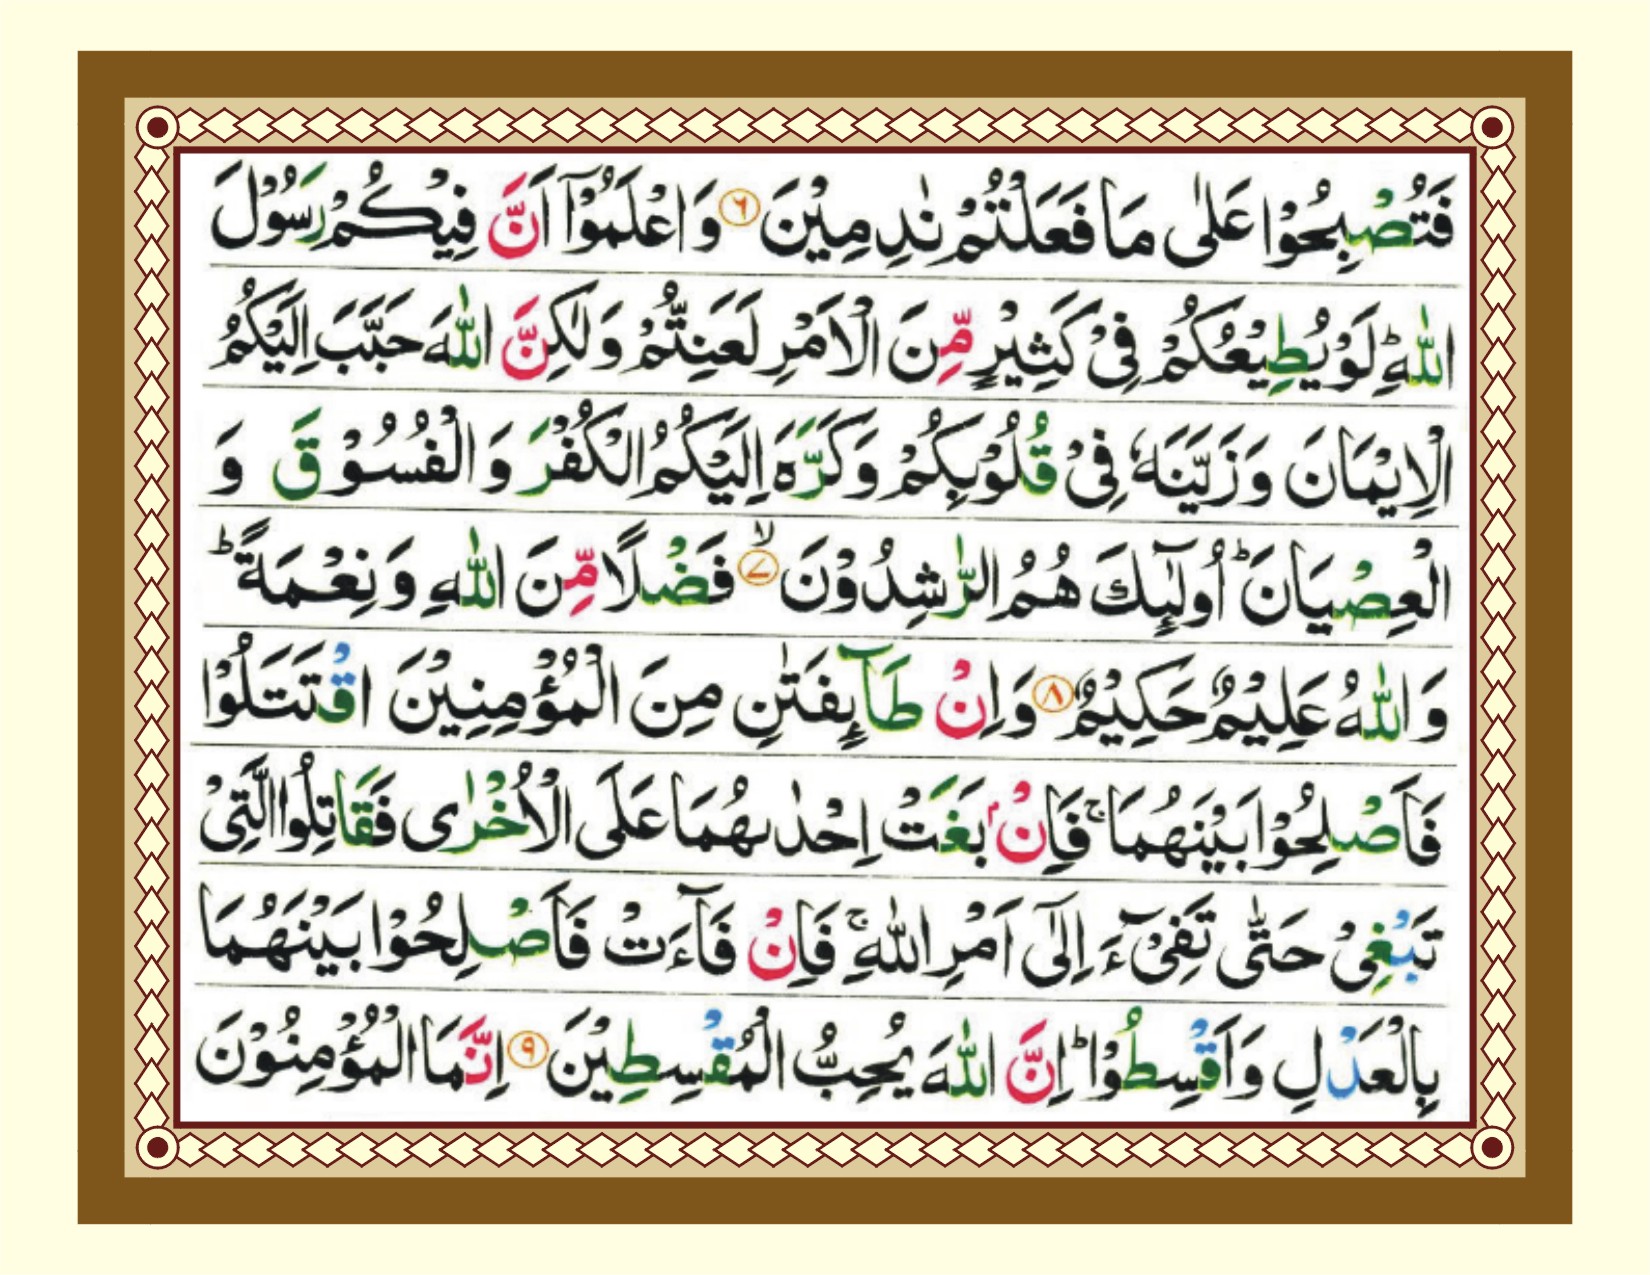 فَتُصْبِحُوْا عَلٰى مَا فَعَلْتُمْ نٰدِمِيْنَ ۶ وَاعْلَمُوْۤا اَنَّ فِيْكُمْ رَسُوْلَ
اللّٰهِ ؕ لَوْ يُطِيْعُكُمْ فِىْ كَثِيْرٍ مِّنَ الْاَمْرِ لَعَنِتُّمْ وَلٰكِنَّ اللّٰهَ حَبَّبَ اِلَيْكُمُ
الْاِيْمَانَ وَزَيَّنَهٗ فِىْ قُلُوْبِكُمْ وَكَرَّهَ اِلَيْكُمُ الْكُفْرَ وَ الْفُسُوْقَ وَ
الْعِصْيَانَ ؕ اُولٰٓئِكَ هُمُ الرّٰشِدُوْنَ ۙ ۷ فَضْلًا مِّنَ اللّٰهِ وَ نِعْمَةً ؕ
وَ اللّٰهُ عَلِيْمٌ حَكِيْمٌ ۸ وَاِنْ طَآئِفَتٰنِ مِنَ الْمُؤْمِنِيْنَ اقْتَتَلُوْا
فَاَصْلِحُوْا بَيْنَهُمَا ۚ فَاِنْۢ بَغَتْ اِحْدٰٮهُمَا عَلَى الْاُخْرٰى فَقَاتِلُوا الَّتِىْ
تَبْغِىْ حَتّٰى تَفِىْٓءَ اِلٰٓى اَمْرِ اللّٰهِ ۚ فَاِنْ فَآءَتْ فَاَصْلِحُوْا بَيْنَهُمَا
بِالْعَدْلِ وَاَقْسِطُوْا ؕ اِنَّ اللّٰهَ يُحِبُّ الْمُقْسِطِيْنَ ۹ اِنَّمَا الْمُؤْمِنُوْنَ